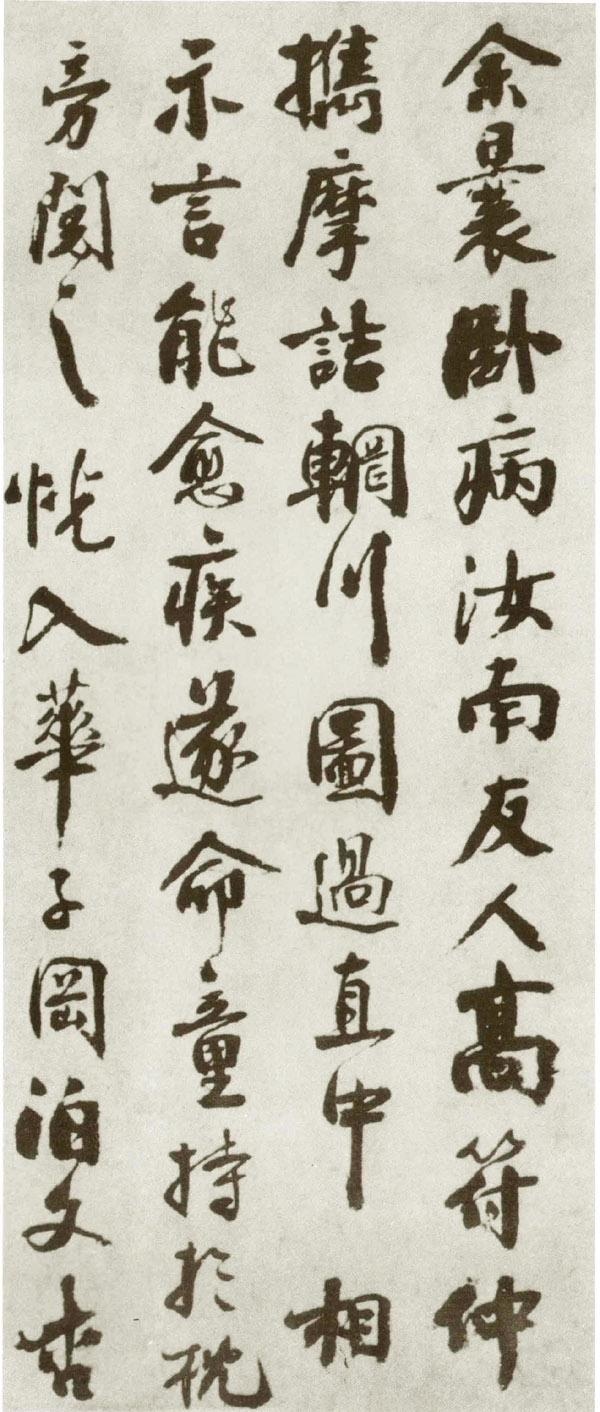 余曩臥病汝南友人髙符仲
攜摩詰輞川圖過直中相
示言能愈疾遂命童持於枕
旁閱之恍入華子岡泊文杏